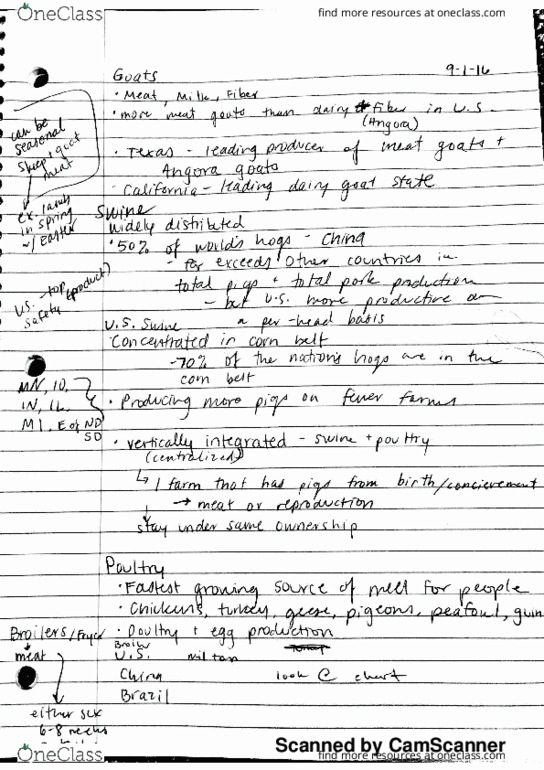 OneClass
find more resources at oneclass.com
9-1-16
Goats
· Meat, Milk, Fiber
· more meat goats than dairy + Fiber in U.S.
(Angora)
can be
seasonal
sheep + goat
meat
ex. lamb
in spring
w/ Easter
· Texas - leading producer of meat goats +
Angora goats
· California - leading dairy goat state
Swine
widely distributed
· 50% of world's hogs - China
- far exceeds other countries in
total pigs + total pork production
- but U.S. more productive on
a per-head basis
U.S. - top
safety (product)
U.S. Swine
Concentrated in corn belt
-70% of the nation's hogs are in the
corn belt
MN, IO,
IN, IL,
MI, E of ND
SD
· Producing more pigs on fewer farms
· vertically integrated - swine + poultry
(centralized)
↳ 1 farm that has pigs from birth/concievement
→ meat or reproduction
stay under same ownership
Poultry
· Fastest growing source of meat for people
· Chickens, turkey, geese, pigeons, peafowl, guin
· Poultry + egg production
Broilers/Fryer
meat
either sex
6-8 weeks
Broiler
U.S. mil ton
China look @ chart
Brazil
Scanned by CamScanner
OneClass
find more resources at oneclass.com